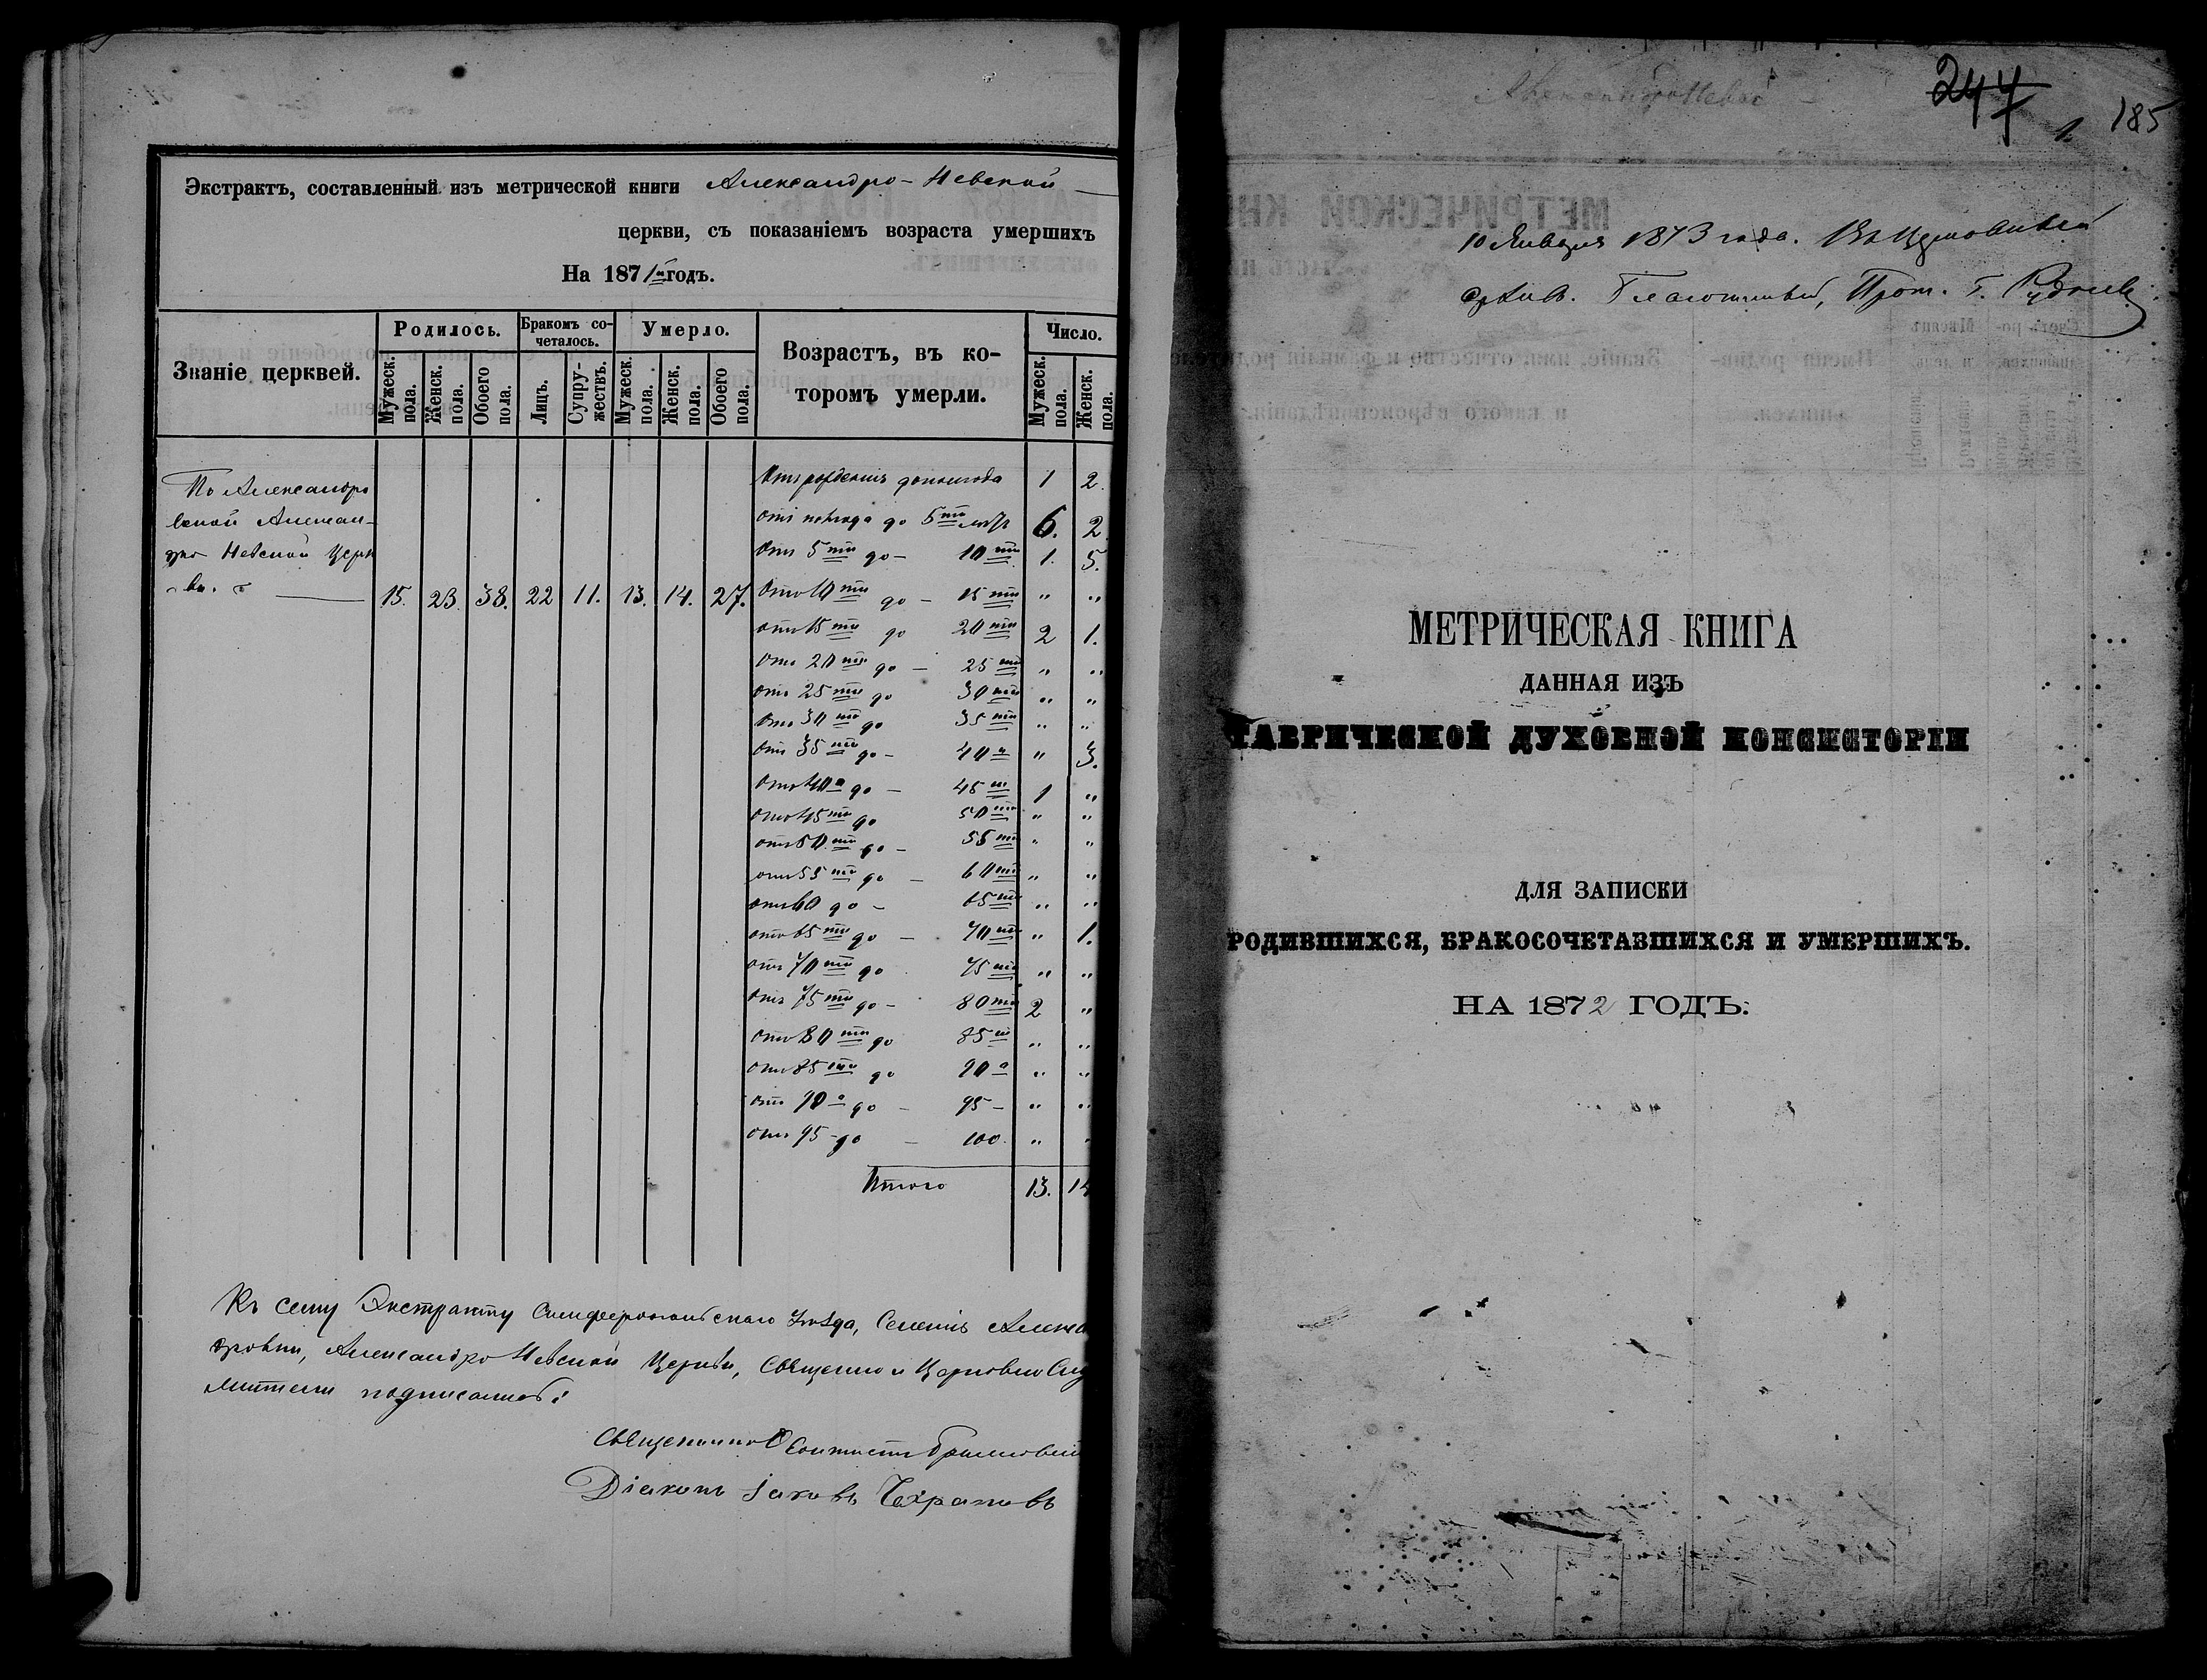 Экстрактъ, составленный изъ метрической книги Александро-Невской
церкви, съ показаніемъ возраста умершихъ
На 1871й годъ.
Званіе церквей.
Родилось.
Бракомъ со-
четалось.
Умерло.
Возрастъ, въ ко-
торомъ умерли.
Число.
Мужеск. пола.
Женск. пола.
Обоего пола.
Лицъ.
Супру-
жествъ.
Мужеск. пола.
Женск. пола.
Обоего пола.
Мужеск. пола.
Женск. пола.
По Александро
вской Алексан-
дро Невской Церк
ви.
15. 23. 38. 22 11. 13. 14. 27.
Отъ рожденія до полгода 1 2.
отъ полгода до 5ти лѣтъ 6. 2
Отъ 5ти до - 10ти 1. 5.
Отъ 10ти до - 15ти " "
отъ 15ти до 20ти 2 1.
Отъ 20ти до - 25ти " "
отъ 25ти до 30ти " "
Отъ 30ти до 35ти " "
Отъ 35ти до - 40а " 3.
Отъ 40а до - 45ти 1 "
отъ 45ти до 50ти " "
отъ 50ти до - 55ти " "
отъ 55ти до - 60ти " "
отъ 60 до - 65ти " "
отъ 65ти до - 70ти " 1.
отъ 70ти до 75ти " "
отъ 75ти до - 80ти 2 "
отъ 80ти до 85ти " "
отъ 85ти до 90а " "
отъ 90а до - 95 - " "
отъ 95 до - 100. "
Итого 13. 14
Къ сему Экстракту Симферопольскаго Уѣзда, Селенія Алекса
дровки, Александро Невской Церкви, Священно и Церковно Слу
жители подписались:
Священникъ
Діаконъ Іаковъ
247
185
1.
10 Января 1873 года. Въ
архив. Прот. Г. Руднев
МЕТРИЧЕСКАЯ КНИГА
ДАННАЯ ИЗЪ
ТАВРИЧЕСКОЙ ДУХОВНОЙ КОНСИСТОРІИ
ДЛЯ ЗАПИСКИ
РОДИВШИХСЯ, БРАКОСОЧЕТАВШИХСЯ И УМЕРШИХЪ.
НА 1872 ГОДЪ.